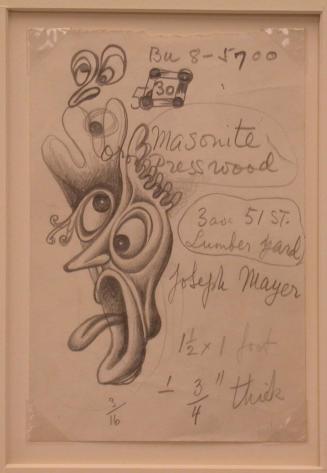 Bu 8-5700
30
or Masonite
Presswood
3 ave 51 ST.
Lumber yard
Joseph Mayer
1½ x 1 foot
1 3/4" thick
3/16